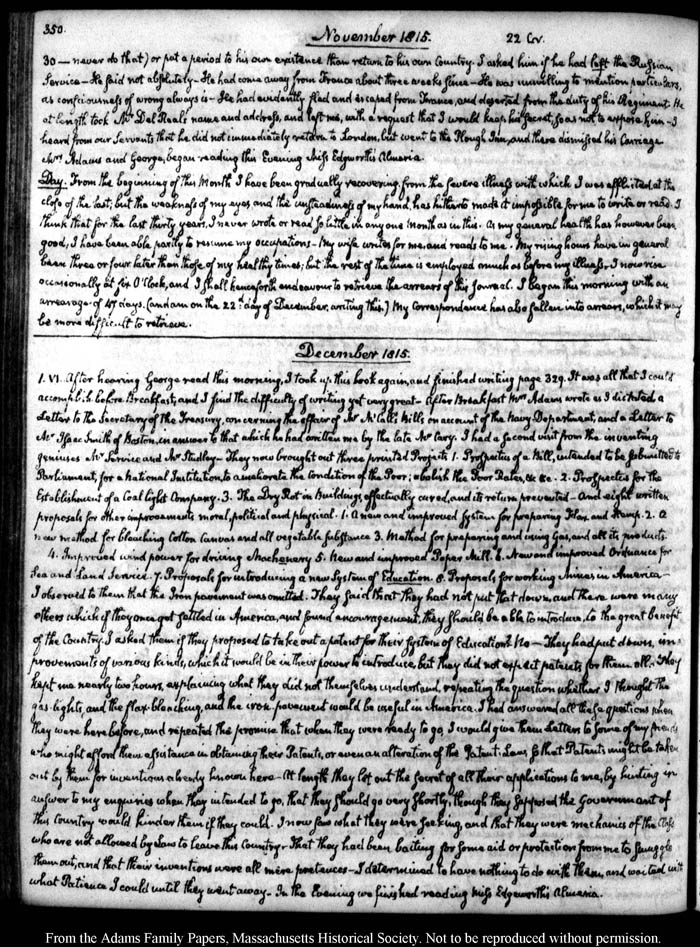 350.
November 1815.
22 Cor.
30 — never do that) or put a period to his own existence than return to his own Country. I asked him if he had left the Russian
Service — He said not absolutely — He had come away from France about three weeks since — He was unwilling to mention particulars,
as consciousness of wrong always is — He had evidently fled and escaped from France, and deserted from the duty of his Regiment. He
at length took Mr. Del Real's name and address, and left me, with a request that I would keep his secret, so as not to expose him — I
heard from our Servants that he did not immediately return to London, but went to the Plough Inn, and there dismissed his Carriage
Mrs. Adams and George, began reading this Evening Miss Edgworth's Almeria.
Day. From the beginning of this Month I have been gradually recovering from the severe illness with which I was afflicted at the
close of the last; but the weakness of my eyes and the unsteadiness of my hand, has hitherto made it impossible for me to write or read. I
think that for the last thirty years, I never wrote or read so little in any one month as in this. As my general health has however been
good, I have been able partly to resume my occupations — My wife writes for me, and reads to me. My rising hours have in general
been three or four later than those of my healthy times; but the rest of the time is employed much as before my illness. I now rise
occasionally at six O'Clock, and I shall henceforth endeavour to retrieve the arrears of this Journal. I began this morning with an
arrearage of 47 days. (and am on the 22d. day of December, writing this.) My Correspondence has also fallen into arrears, which it may
be more difficult to retrieve.
December 1815.
1. VI. After hearing George read this morning, I took up this book again, and finished writing page 329. It was all that I could
accomplish before Breakfast, and I find the difficulty of writing yet very great — After Breakfast Mrs Adams wrote as I dictated a
Letter to the Secretary of the Treasury, concerning the affair of Mr McCall's Bills on account of the Navy Department, and a Letter to
Mr. Isaac Smith of Boston, in answer to that which he had written me by the late Mr Cary. I had a second visit from the inventing
geniuses Mr Service and Mr Studley — They now brought out three printed Projects 1. Prospectus of a Bill, intended to be submitted to
Parliament, for a National Institution, to ameliorate the condition of the Poor; abolish the Poor Rates, &c &c. 2. Prospectus for the
Establishment of a Coal light Company. 3. The Dry Rot in Buildings effectually cured, and its return prevented — And eight written
proposals for other improvements moral, political and physical. 1. A new and improved System for preparing Flax and Hemp. 2. A
new method for bleaching Cotton Canvas and all vegetable substance 3. Method for preparing and using Gas, and all its products
4. Improved wind power for driving Machenery 5. New and improved Paper Mill. 6. New and improved Ordnance for
Sea and Land Service. 7. Proposals for introducing a new System of Education. 8. Proposals for working Mines in America —
I observed to them that the Iron pavement was omitted. They said that they had not put that down, and there were many
others which if they once got settled in America, and found encouragement, they should be able to introduce, to the great benefit
of the Country. I asked them if they proposed to take out a patent for their System of Education? No — They had put down, im-
provements of various kinds, which it would be in their power to introduce, but they did not expect patents for them all. They
kept me nearly two hours, explaining what they did not themselves understand, repeating the question whether I thought the
gas-lights, and the flax-bleaching, and the iron pavement would be useful in America. I had answered all these questions when
they were here before, and repeated the promise that when they were ready to go, I would give them Letters to some of my friends
who might afford them assistance in obtaining their Patents, or even an alteration of the Patent-Laws so that Patents might be taken
out by them for inventions already known here. At length they let out the secret of all their applications to me, by hinting in
answer to my enquiries when they intended to go, that they should go very shortly, though they supposed the Government of
this Country would hinder them if they could. I now saw what they were seeking, and that they were mechanics of the class
who are not allowed by Law to leave this Country — That they had been baiting for some aid or protection from me to smuggle
them out, and that their inventions were all mere pretences — I determined to have nothing to do with them, and waited with
what Patience I could until they went away. In the Evening we finished reading Miss Edgeworth's Almeria.
From the Adams Family Papers, Massachusetts Historical Society. Not to be reproduced without permission.